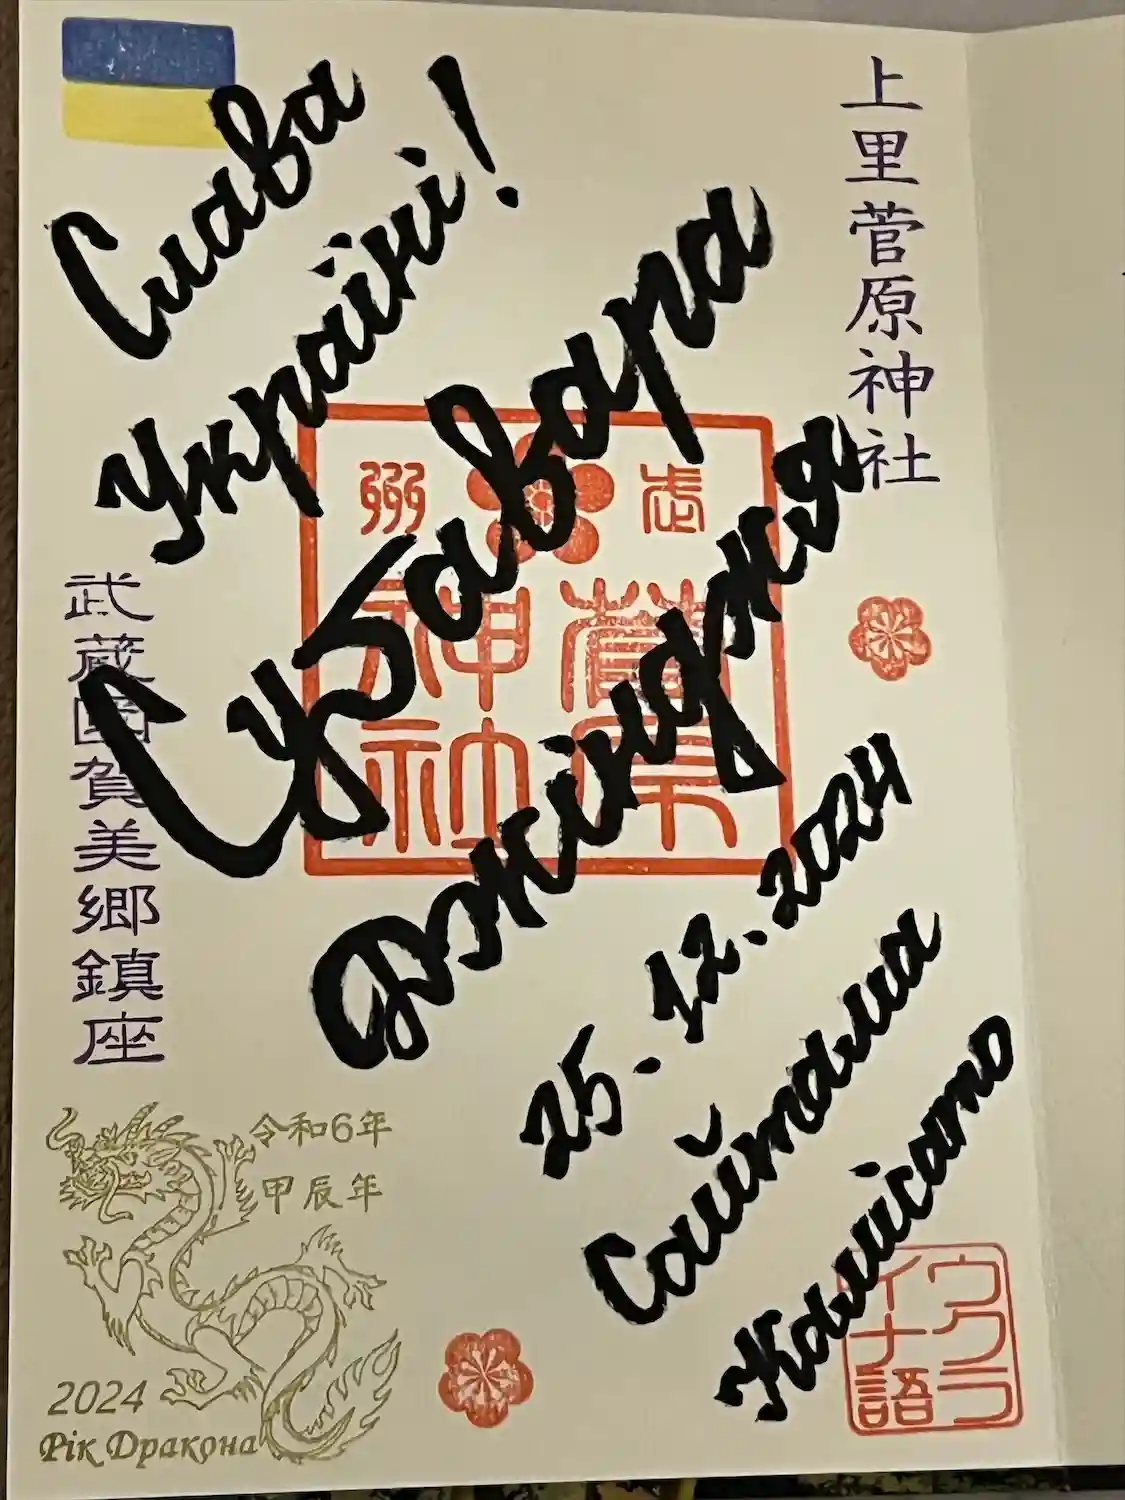 上里菅原神社
Слава
Україні!
Субавара
Джінджя
25.12.2024
Сайтама
Камісато
武州
菅原
神社
武蔵國賀美郷鎮座
令和6年
甲辰年
2024
Рік Дракона
ウクラ
イナ語